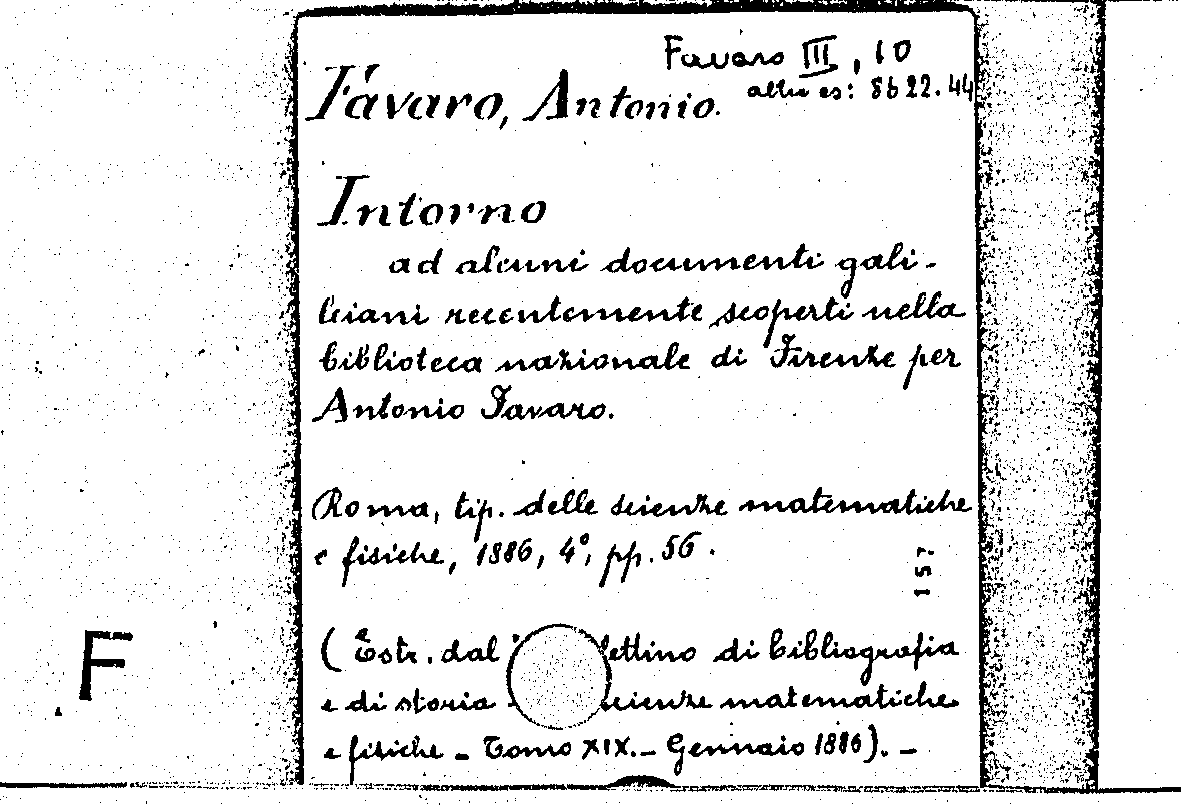 Favaro III, 10
altro es: 8b22.44
Favaro, Antonio.
Intorno
ad alcuni documenti gali-
leiani recentemente scoperti nella
biblioteca nazionale di Firenze per
Antonio Favaro.
Roma, tip. delle scienze matematiche
e fisiche, 1886, 4°, pp. 56.
157
(Estr. dal lettino di bibliografia
e di storia scienze matematiche
e fisiche - Tomo XIX. - Gennaio 1886). -
F